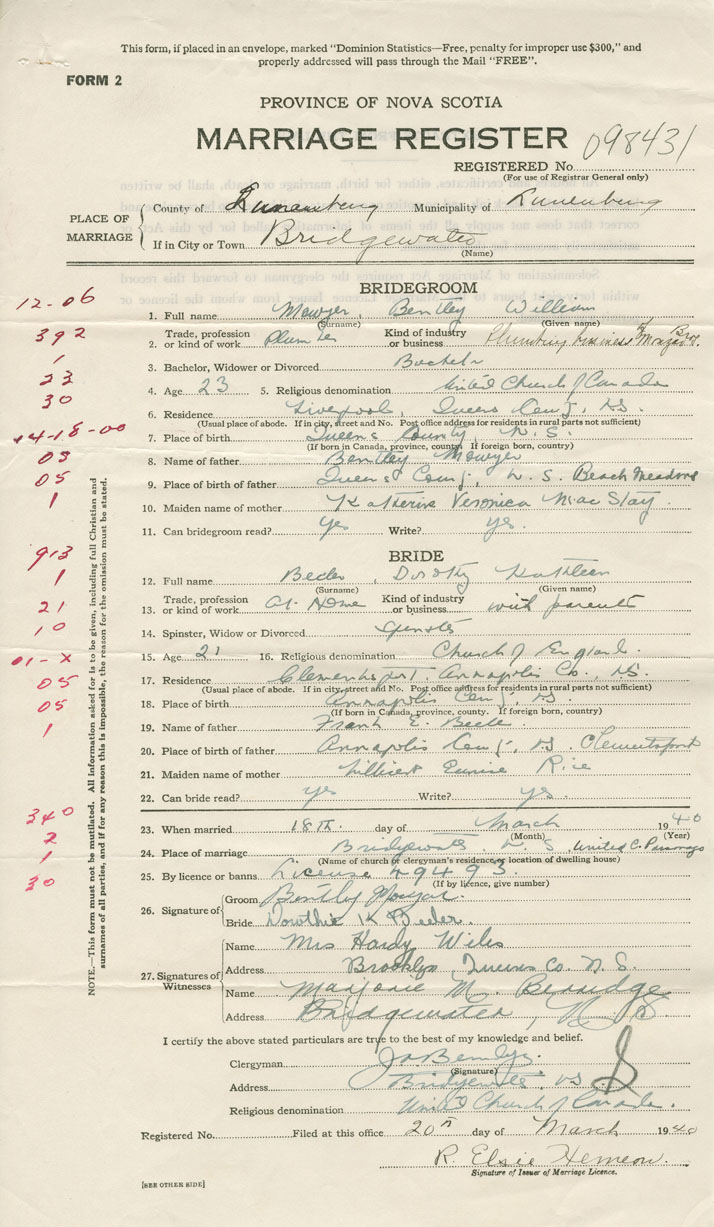 This form, if placed in an envelope, marked "Dominion Statistics—Free, penalty for improper use $300," and
properly addressed will pass through the Mail "FREE".
FORM 2
PROVINCE OF NOVA SCOTIA
MARRIAGE REGISTER 098431
REGISTERED No.
(For use of Registrar General only)
PLACE OF MARRIAGE
County of Lunenburg Municipality of Lunenburg
If in City or Town Bridgewater
(Name)
BRIDEGROOM
12-06
1. Full name Mowyer, Bentley William
(Surname) (Given name)
392
2. Trade, profession or kind of work Plumber Kind of industry or business Plumbing business
1
3. Bachelor, Widower or Divorced Bachelr
23
4. Age 23 5. Religious denomination United Church of Canada
30
6. Residence Liverpool, Queens County, N.S.
(Usual place of abode. If in city, street and No. Post office address for residents in rural parts not sufficient)
14-18-00
7. Place of birth Queens County, N.S.
(If born in Canada, province, county. If foreign born, country)
05
8. Name of father Bentley Mowyer
05
9. Place of birth of father Queens County, N.S. Beach Meadows
1
10. Maiden name of mother Katherine Veronica Mac Slay
11. Can bridegroom read? Yes Write? yes.
BRIDE
913
1
12. Full name Beeler, Dorothy Kathleen
(Surname) (Given name)
21
13. Trade, profession or kind of work At Home Kind of industry or business with parents
10
14. Spinster, Widow or Divorced Spinster
01-X
15. Age 21 16. Religious denomination Church of England.
05
17. Residence Clementsport, Annapolis Co., N.S.
(Usual place of abode. If in city, street and No. Post office address for residents in rural parts not sufficient)
05
18. Place of birth Annapolis County, N.S.
(If born in Canada, province, county. If foreign born, country)
1
19. Name of father Frank E. Beeler
20. Place of birth of father Annapolis County, N.S. Clementsport
21. Maiden name of mother Eunice Rice
22. Can bride read? yes Write? yes.
340
23. When married 18th day of March 1940
(Month) (Year)
2
24. Place of marriage Bridgewater N.S. United C. Parsonage
(Name of church or clergyman's residence or location of dwelling house)
1
25. By licence or banns License 49493
(If by licence, give number)
30
26. Signature of Groom Bently Mouzar
Bride K Beeler.
27. Signatures of Witnesses
Name Mrs Hardy Wiles
Address Brooklyn Queens Co. N.S.
Name Marjorie M. Berridge
Address Bridgewater, N.S.
I certify the above stated particulars are true to the best of my knowledge and belief.
Clergyman
(Signature)
Address Bridgewater N.S.
Religious denomination United Church of Canada.
Registered No. Filed at this office 20th day of March 1940
R. Elsie Hemeon.
Signature of Issuer of Marriage Licence.
[SEE OTHER SIDE]
NOTE.—This form must not be mutilated. All information asked for is to be given, including full Christian and
surnames of all parties, and if for any reason this is impossible, the reason for the omission must be stated.